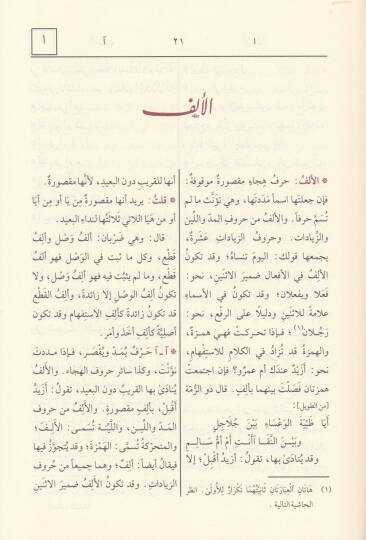 ا
٢١
آ
١
الألِف
* الألفُ: حرفُ هِجاءٍ مقصورةٌ موقوفةٌ؛
فإن جعلتها اسماً مَدَدتَها، وهي تؤنَّث ما لم
تُسَمَّ حرفاً. والألف من حروف المدّ واللّين
والزّيادات. وحروف الزّيادات عَشَرةٌ،
يجمعها قولك: اليومَ تنساهُ؛ وقد تكونُ
الألِفُ في الأفعال ضميرَ الاثنين، نحو:
فَعَلا ويفعلان؛ وقد تكونُ في الأسماءِ
علامةً للاثنين ودليلاً على الرفْع، نحو:
رَجُلان(١)؛ فإذا تحركتْ فهي همزةٌ،
والهمزةُ قد تُزادُ في الكلام للاستفهام،
نحو: أزيدٌ عندك أم عمرٌو؟ فإن اجتمعتْ
همزتان فَصَلْتَ بينهما بألِفٍ. قال ذو الرُّمّة
[من الطويل]:
أيا ظَبْيَةَ الوَعْساءِ بَيْنَ جُلاجِلٍ
وبَيْنَ النَّقا آأنتِ أمْ أُمُّ سالِمِ
وقد يُنادَى بها، تقول: أزيدُ أقبِلْ؛ إلا
أنها للقريبِ دون البعيدِ، لأنَّها مقصورةٌ.
* قلتُ: يريد أنها مقصورةٌ مِنْ يَا أو مِن أيَا
أو من هَيَا اللاتي ثلاثتُها لنداءِ البعيد.
قال: وهي ضَرْبان: ألفُ وَصْل وألِفُ
قَطْعٍ، وكلّ ما ثبت في الوَصْل فهو ألفُ
قَطْعٍ، وما لم يثبُت فيه فهو ألِفُ وَصْل، ولا
تكونُ ألِفُ الوصْلِ إلا زائدةً، وألِفُ القَطْع
قد تكونُ زائدةً كألِفِ الاستفهام وقد تكون
أصليَّةً كألِفِ أخَذَ وأمر.
* آ ـ آ حَرْفٌ يُمَدُّ ويُقْصَر، فإذا مددتَ
نوَّنْتَ، وكذا سائر حروف الهجاء. والألِفُ
يُنادَى بها القريبُ دون البعيد، تقول: أزَيدُ
أَقْبِلْ، بألِفٍ مقصورةٍ. والألِفُ من حروف
المدّ واللّين، واللَّيّنة تُسَمى: الألِفَ؛
والمتحركةُ تُسمَّى: الهَمْزَةَ؛ وقد يُتجوَّز فيها
فيقال أيضاً: ألِفٌ؛ وهما جميعاً من حُروف
الزياداتِ. وقد تكونُ الألِفُ ضميرَ الاثنَينِ
(١) هَاتَانِ العِبارَتَانِ ثَانِيَتُهُمَا تَكْرَارٌ للأُولَى. انظر
الحاشية التالية.